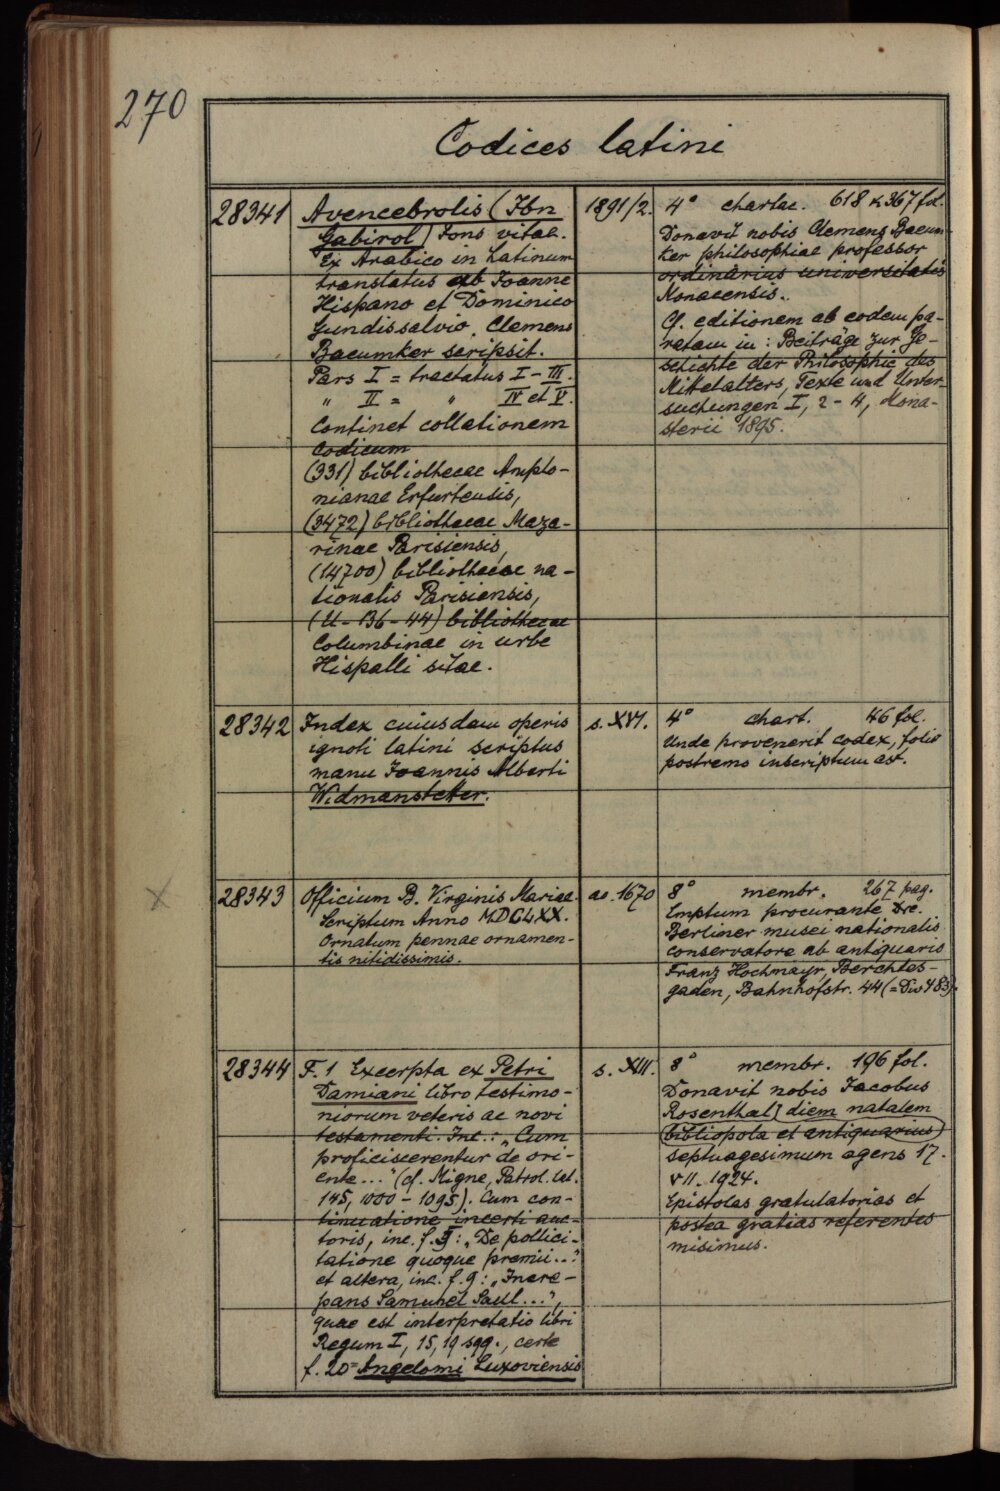 270
Codices latini
28341
Avencebrolis (Ibn
Gabirol) Fons vitae.
Ex Arabico in Latinum
translatus ab Joanne
Hispano et Dominico
Gundissalvio. Clemens
Baeumker scripsit.
Pars I = tractatus I – III.
" II = " IV et V.
Continet collationem
codicum
(331) bibliothecae Amplo-
nianae Erfurtensis,
(3472) bibliothecae Maza-
rinae Parisiensis,
(14700) bibliothecae na-
tionalis Parisiensis,
(U - 136 - 44) bibliothecae
Columbinae in urbe
Hispalli sitae.
1891/2.
4° chartac. 618 & 367 fol.
Donavit nobis Clemens Baeum-
ker philosophiae professor
ordinarius universitatis
Monacensis.
Cf. editionem ab eodem pa-
ratam in: Beiträge zur Ge-
schichte der Philosophie des
Mittelalters, Texte und Unter-
suchungen I, 2 - 4, Mona-
sterii 1895.
28342
Index cuiusdam operis
ignoti latini scriptus
manu Joannis Alberti
Widmanstetter.
s. XVI.
4° chart. 46 fol.
Unde provenerit codex, folio
postremo inscriptum est.
28343
Officium B. Virginis Mariae.
Scriptum Anno MDCLXX.
Ornatum pennae ornamen-
tis nitidissimis.
ao. 1670
8° membr. 267 pag.
Emptum procurante Dre.
Berliner musei nationalis
conservatore ab antiquario
Franz Hochmayr, Berchtes-
gaden, Bahnhofstr. 44 (= Div 483).
28344
F. 1 Excerpta ex Petri
Damiani libro testimo-
niorum veteris ac novi
testamenti. Inc.: „Cum
proficiscerentur de ori-
ente..." (cf. Migne, Patrol. lat.
145, 1000 - 1095). Cum con-
tinuatione incerti auc-
toris, inc. f. 5: „De pollici-
tatione quoque premii..."
et altera, inc. f. 9: „Incre-
pans Samuhel Saul...",
quae est interpretatio libri
Regum I, 15, 19 sqq., certe
f. 20 = Angelomi Luxoviensis
s. XIII.
8° membr. 196 fol.
Donavit nobis Jacobus
Rosenthal, diem natalem
(bibliopola et antiquarius)
septuagesimum agens 17.
VII. 1924.
Epistolas gratulatorias et
postea gratias referentes
misimus.